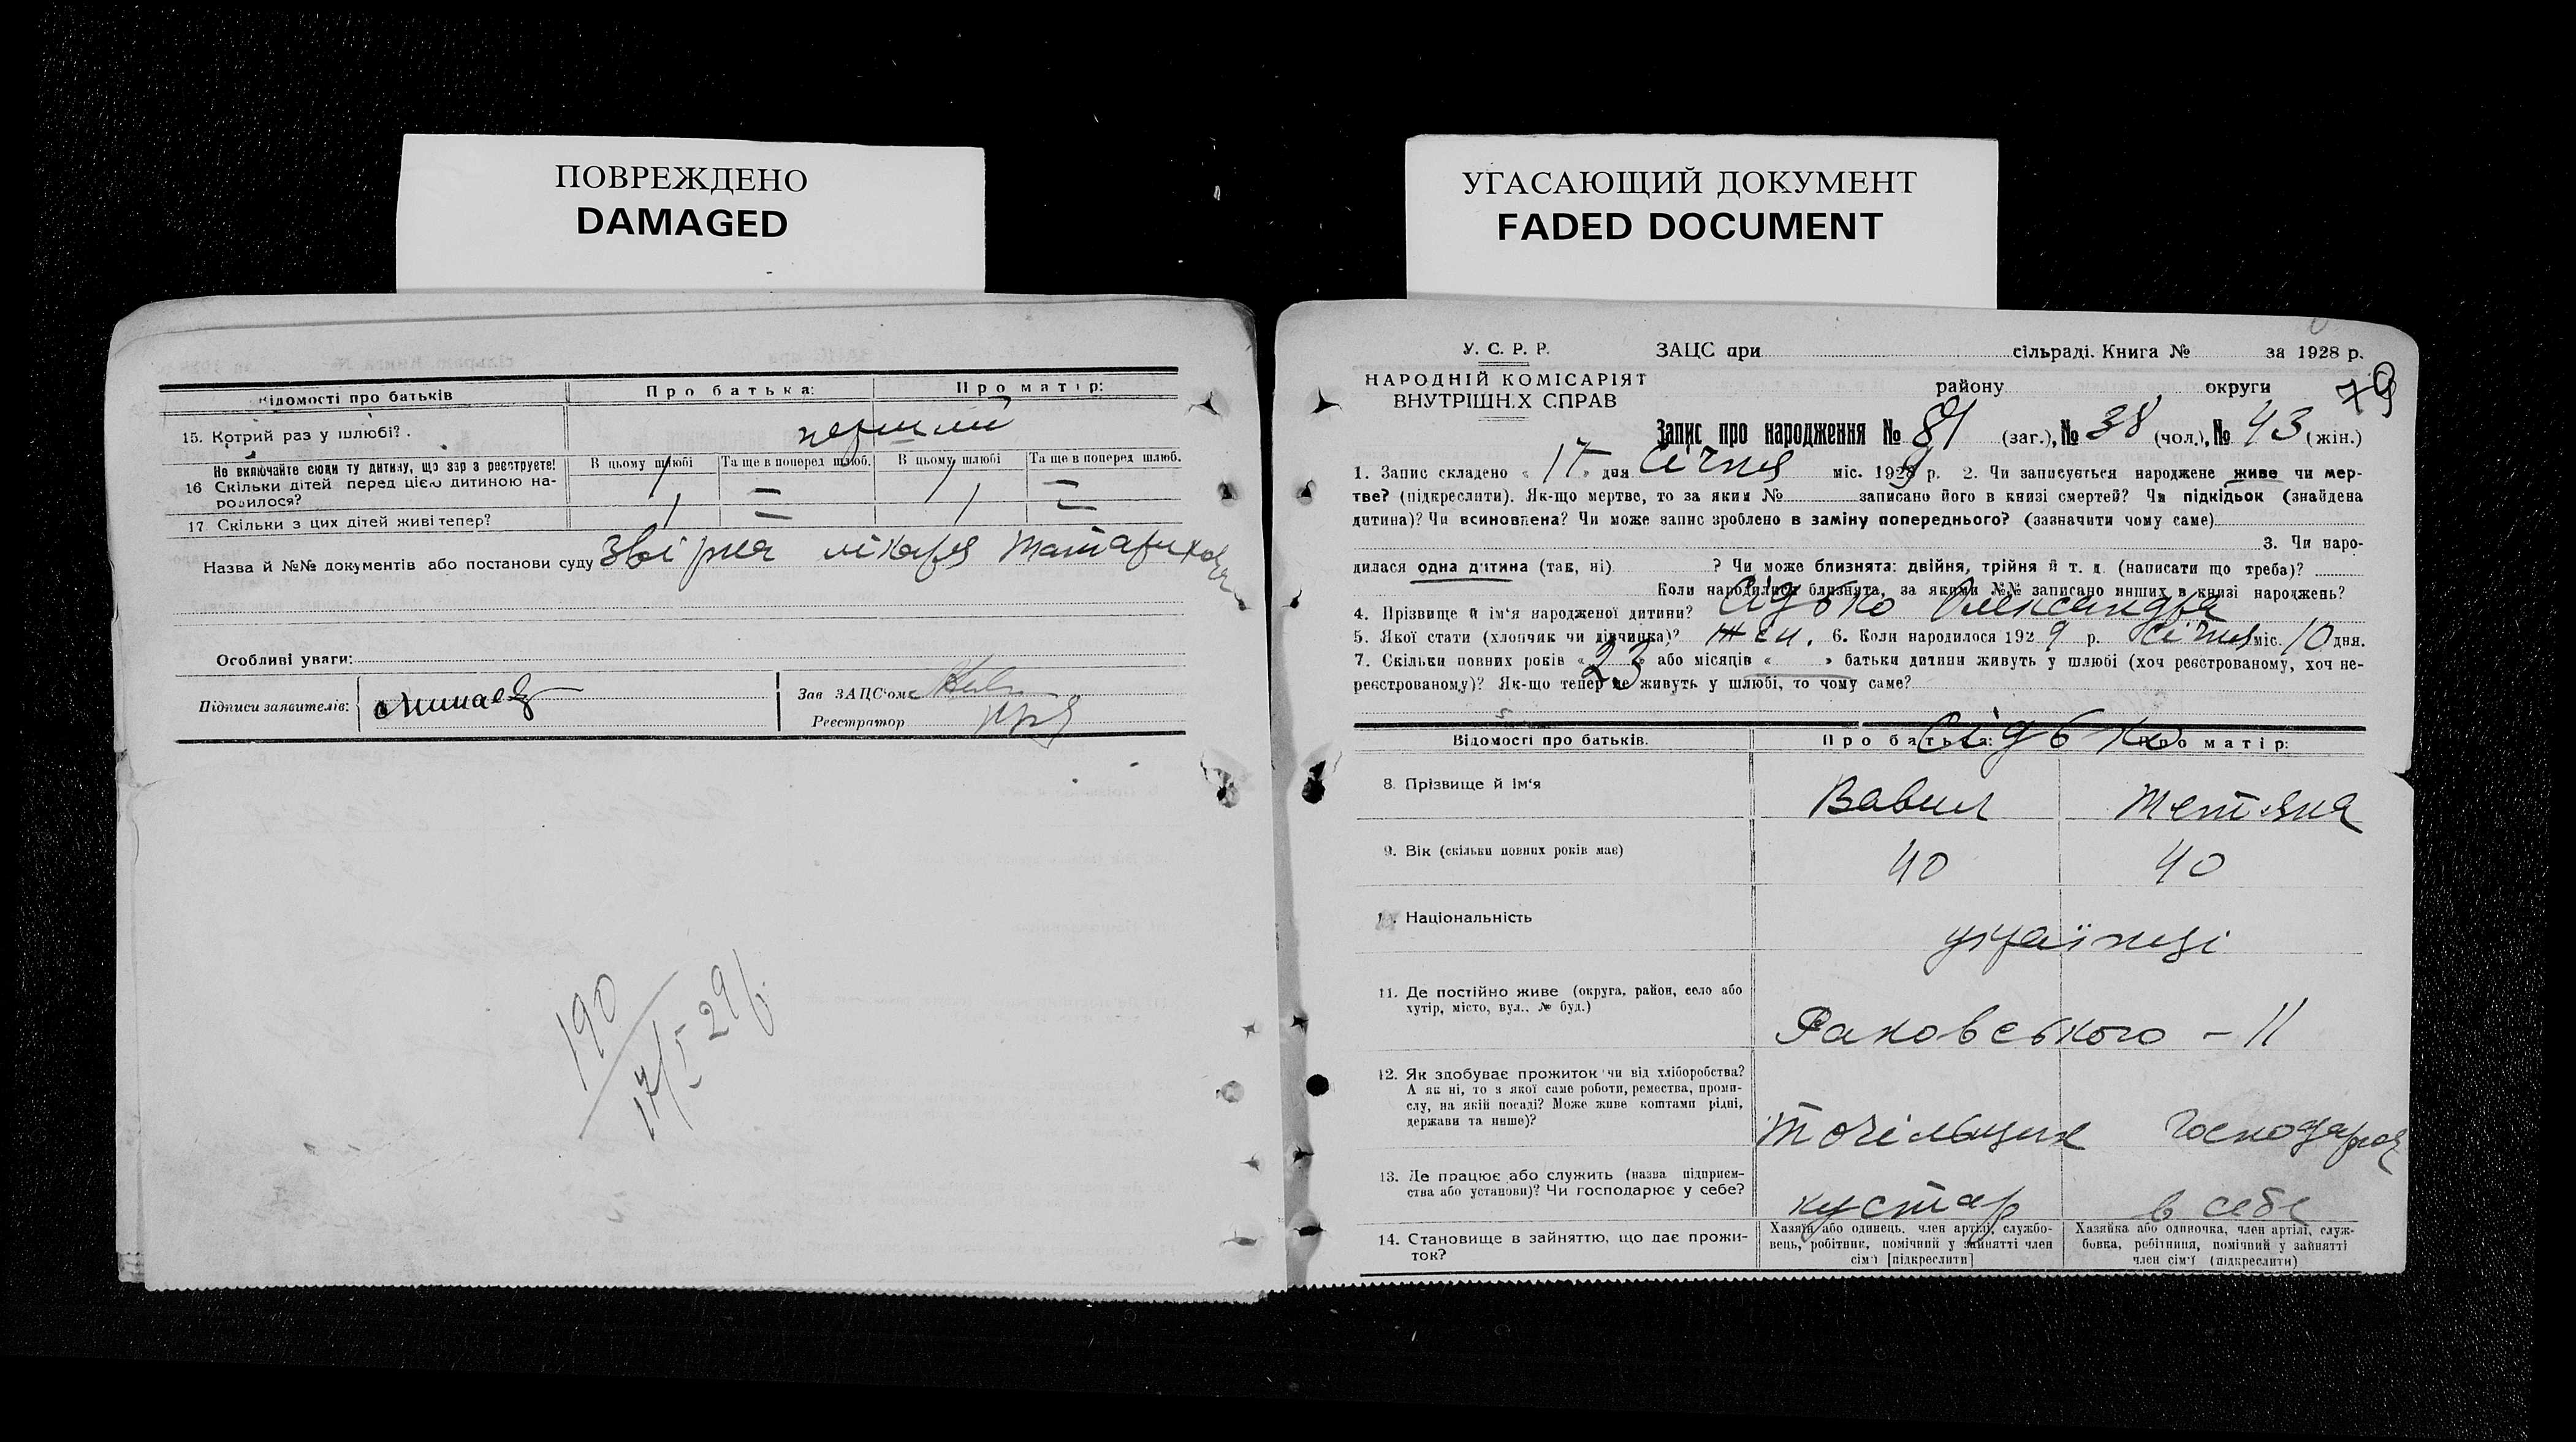 ПОВРЕЖДЕНО
DAMAGED
УГАСАЮЩИЙ ДОКУМЕНТ
FADED DOCUMENT
Відомості про батьків
Про батька:
Про матір:
15. Котрий раз у шлюбі?
перший
Не включайте сюди ту дитину, що зар з реєструєте!
16 Скільки дітей перед цією дитиною на-
родилося?
В цьому шлюбі
Та ще в поперед шлюб.
В цьому шлюбі
Та ще в поперед шлюб.
1 = 1 =
17. Скільки з цих дітей живі тепер?
1 = 1 =
Назва й №№ документів або постанови суду лікаря
Особливі уваги:
Підписи заявителів:
Зав ЗАЦС'ом
Реєстратор
190
17/I 29 р.
У. С. Р. Р.
НАРОДНІЙ КОМІСАРІЯТ
ВНУТРІШН.Х СПРАВ
ЗАЦС при сільраді. Книга № за 1928 р.
району округи 79
Запис про народження № 81 (заг.), № 38 (чол.), № 43 (жін.)
1. Запис складено « 17 » дня Січня міс. 1929 р. 2. Чи записується народжене живе чи мер-
тве? (підкреслити). Як-що мертве, то за яким № записано його в книзі смертей? Чи підкідьок (знайдена
дитина)? Чи всиновлена? Чи може запис зроблено в заміну попереднього? (зазначити чому саме)
3. Чи наро-
дилася одна дитина (так, ні) ? Чи може близнята: двійня, трійня й т. д. (написати що треба)?
Коли народилися близнята, за якими №№ записано инших в книзі народжень?
4. Прізвище й ім'я народженої дитини? Сідько Олександра
5. Якої стати (хлопчик чи дівчинка)? жен. 6. Коли народилося 1929 р. Січня міс. 10 дня.
7. Скільки повних років « 23 » або місяців « » батьки дитини живуть у шлюбі (хоч реєстрованому, хоч не-
реєстрованому)? Як-що тепер не живуть у шлюбі, то чому саме?
Відомості про батьків.
Про батька:
Про матір:
Сідько
8. Прізвище й ім'я
Вавил
Тетяна
9. Вік (скільки повних років має)
40
40
Національність
українці
11. Де постійно живе (округа, район, село або
хутір, місто, вул.. № буд.)
Раковського - 11
12. Як здобуває прожиток чи від хліборобства?
А як ні, то з якої саме роботи, ремества, проми-
слу, на якій посаді? Може живе коштами рідні,
держави та инше)?
точільщик
господарка
13. Де працює або служить (назва підприєм-
ства або установи)? Чи господарює у себе?
кустар
в себе
14. Становище в зайняттю, що дає прожи-
ток?
Хазяїн або одинець. член артілі, службо-
вець, робітник, помічний у зайнятті член
сім'ї [підкреслити]
Хазяйка або одиночка, член артілі, служ-
бовка, робітниця, помічний у зайнятті
член сім'ї (підкреслити)